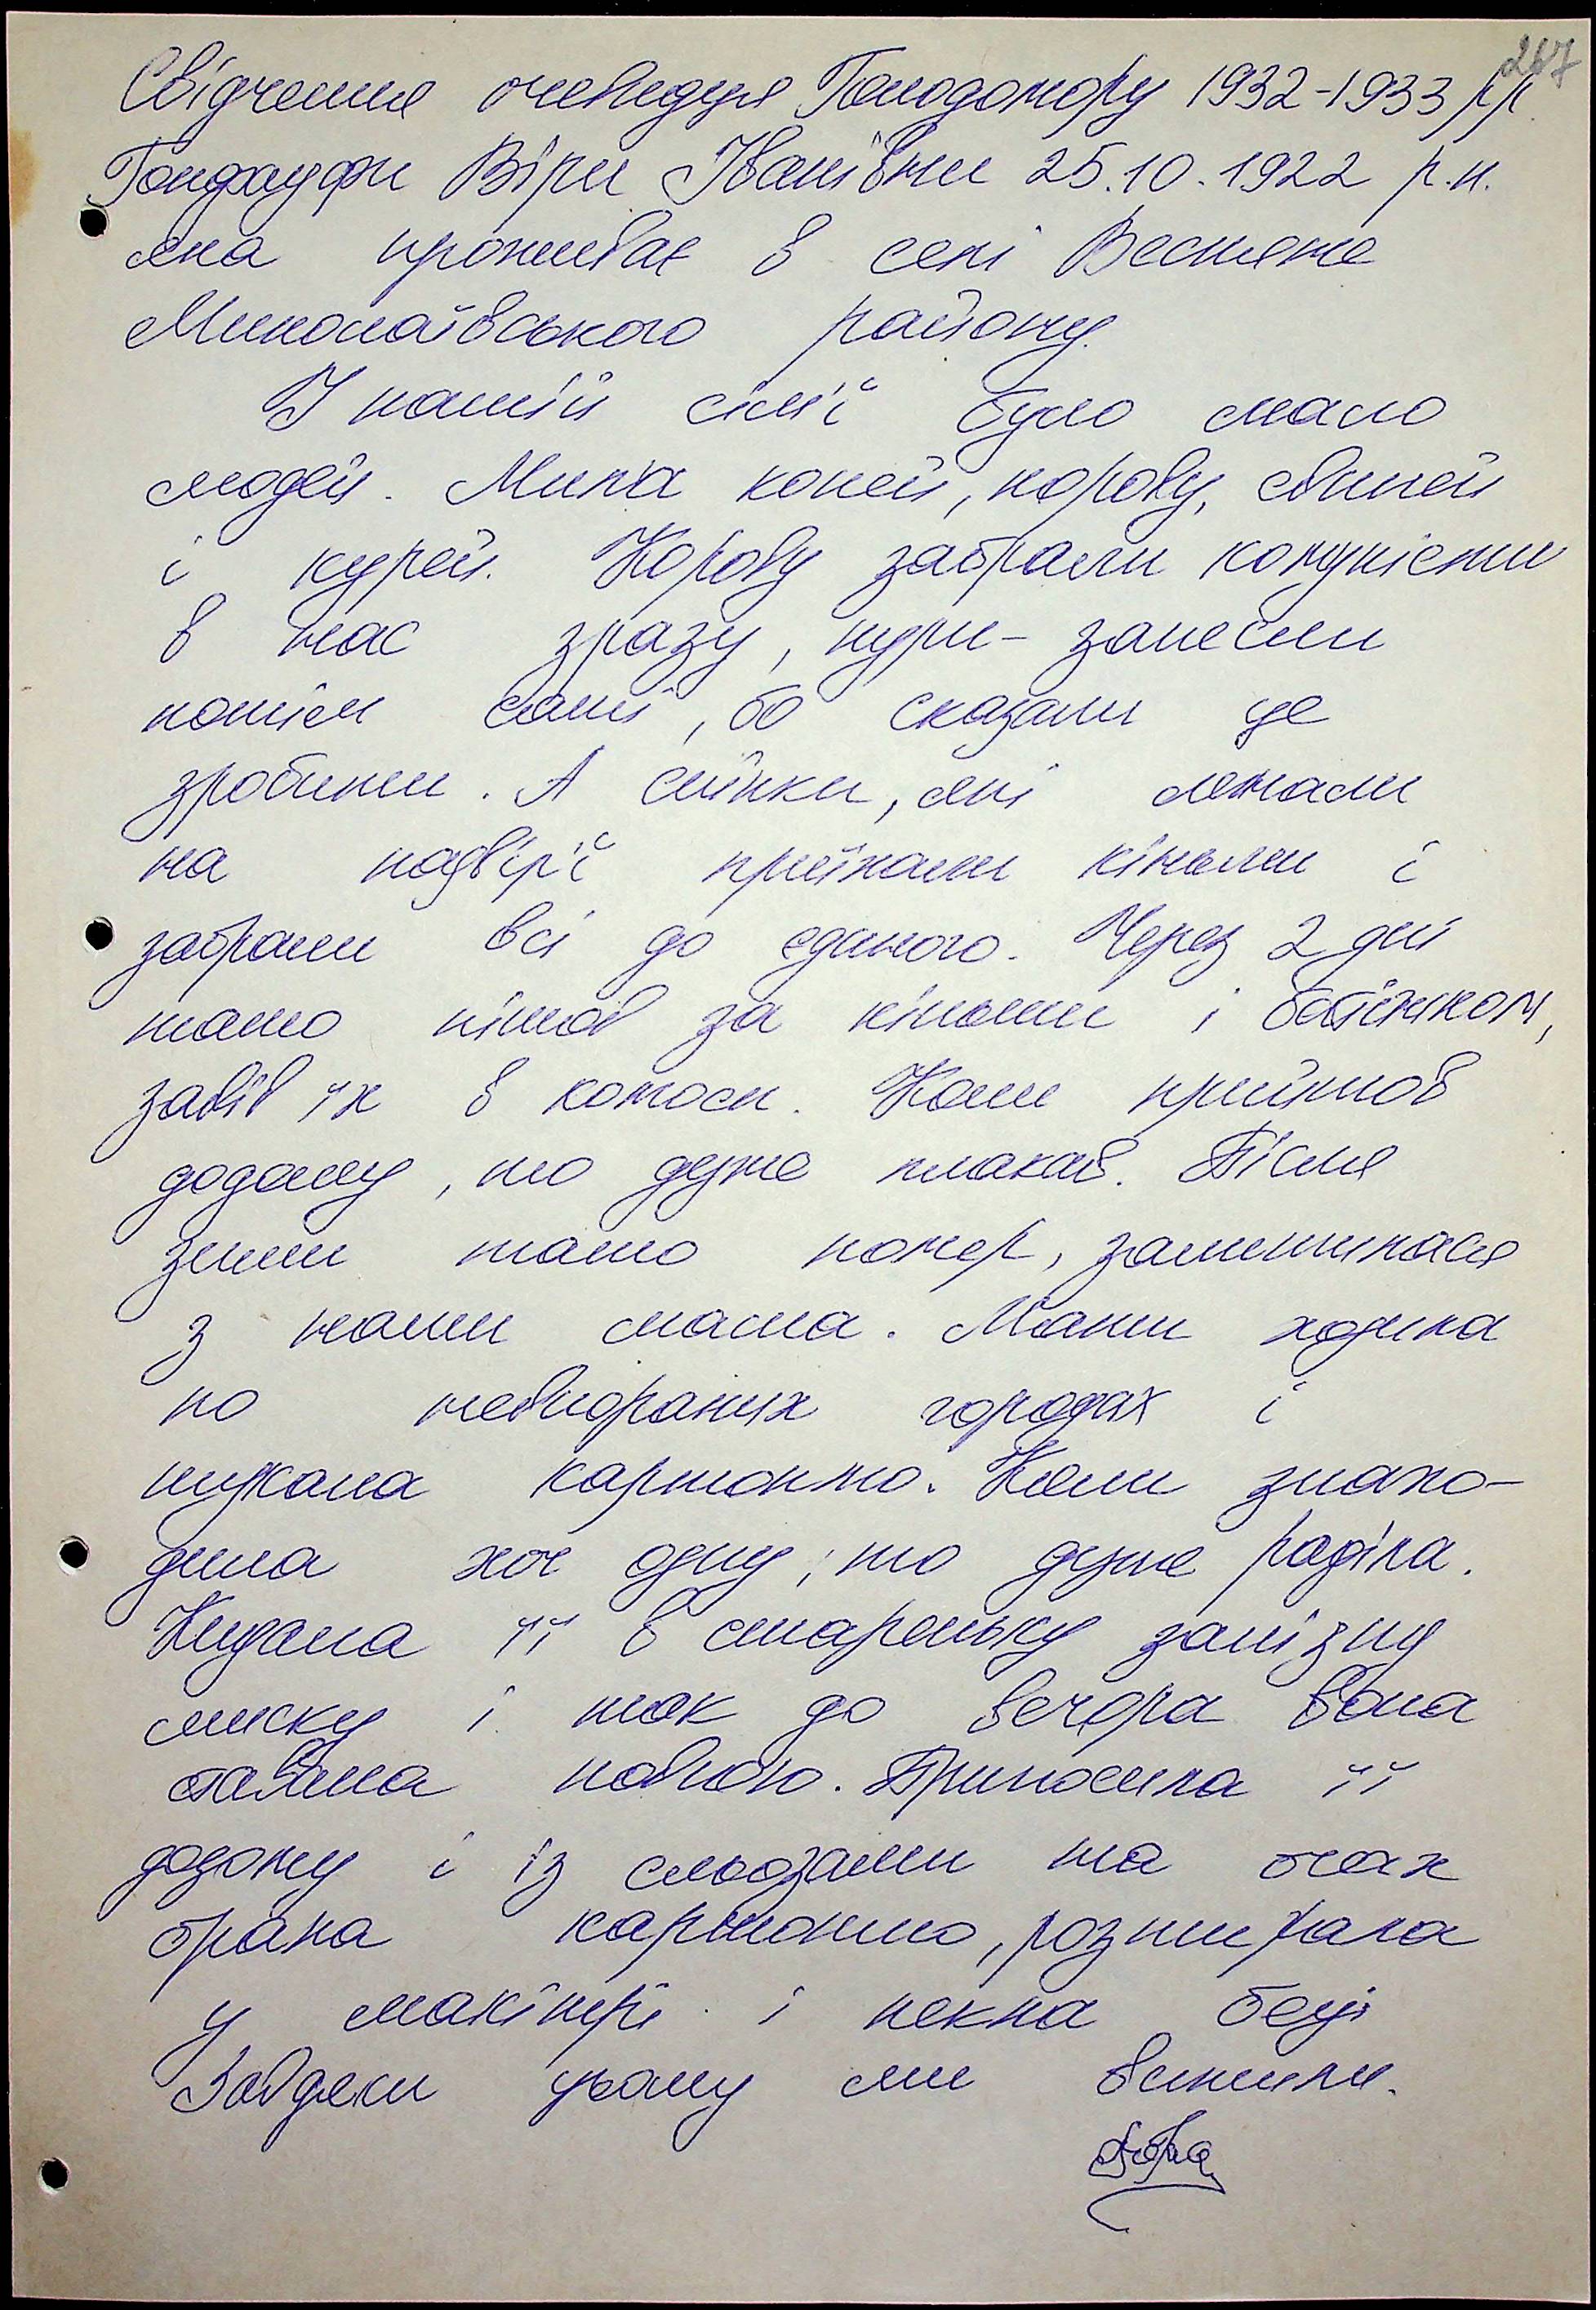 267
Свідчення очевидця Голодомору 1932-1933 рр.
Віри Іванівни 25.10.1922 р.н.
яка проживає в селі Весняне
Миколаївського району.
У нашій сім'ї було мало
людей. Мали коней, корову, свиней
і курей. Корову забрали комуністи
в нас зразу, кури - занесли
потім самі, бо сказали це
зробити. А снопки, які лежали
на подвір'ї приїхали кіньми і
забрали всі до єдиного. Через 2 дні
тато пішов за кіньми і батіжком,
завів їх в колгосп. Коли прийшов
додому, то дуже плакав. Після
зими тато помер, залишилася
з нами мама. Мати ходила
по невиораних городах і
шукала картоплю. Коли знахо-
дила хоч одну, то дуже раділа.
Кидала її в стареньку залізну
миску і так до вечора вона
ставала повною. Приносила її
додому і із сльозами на очах
брала картоплю, розтирала
у макітрі і пекла
Завдяки цьому ми вижили.